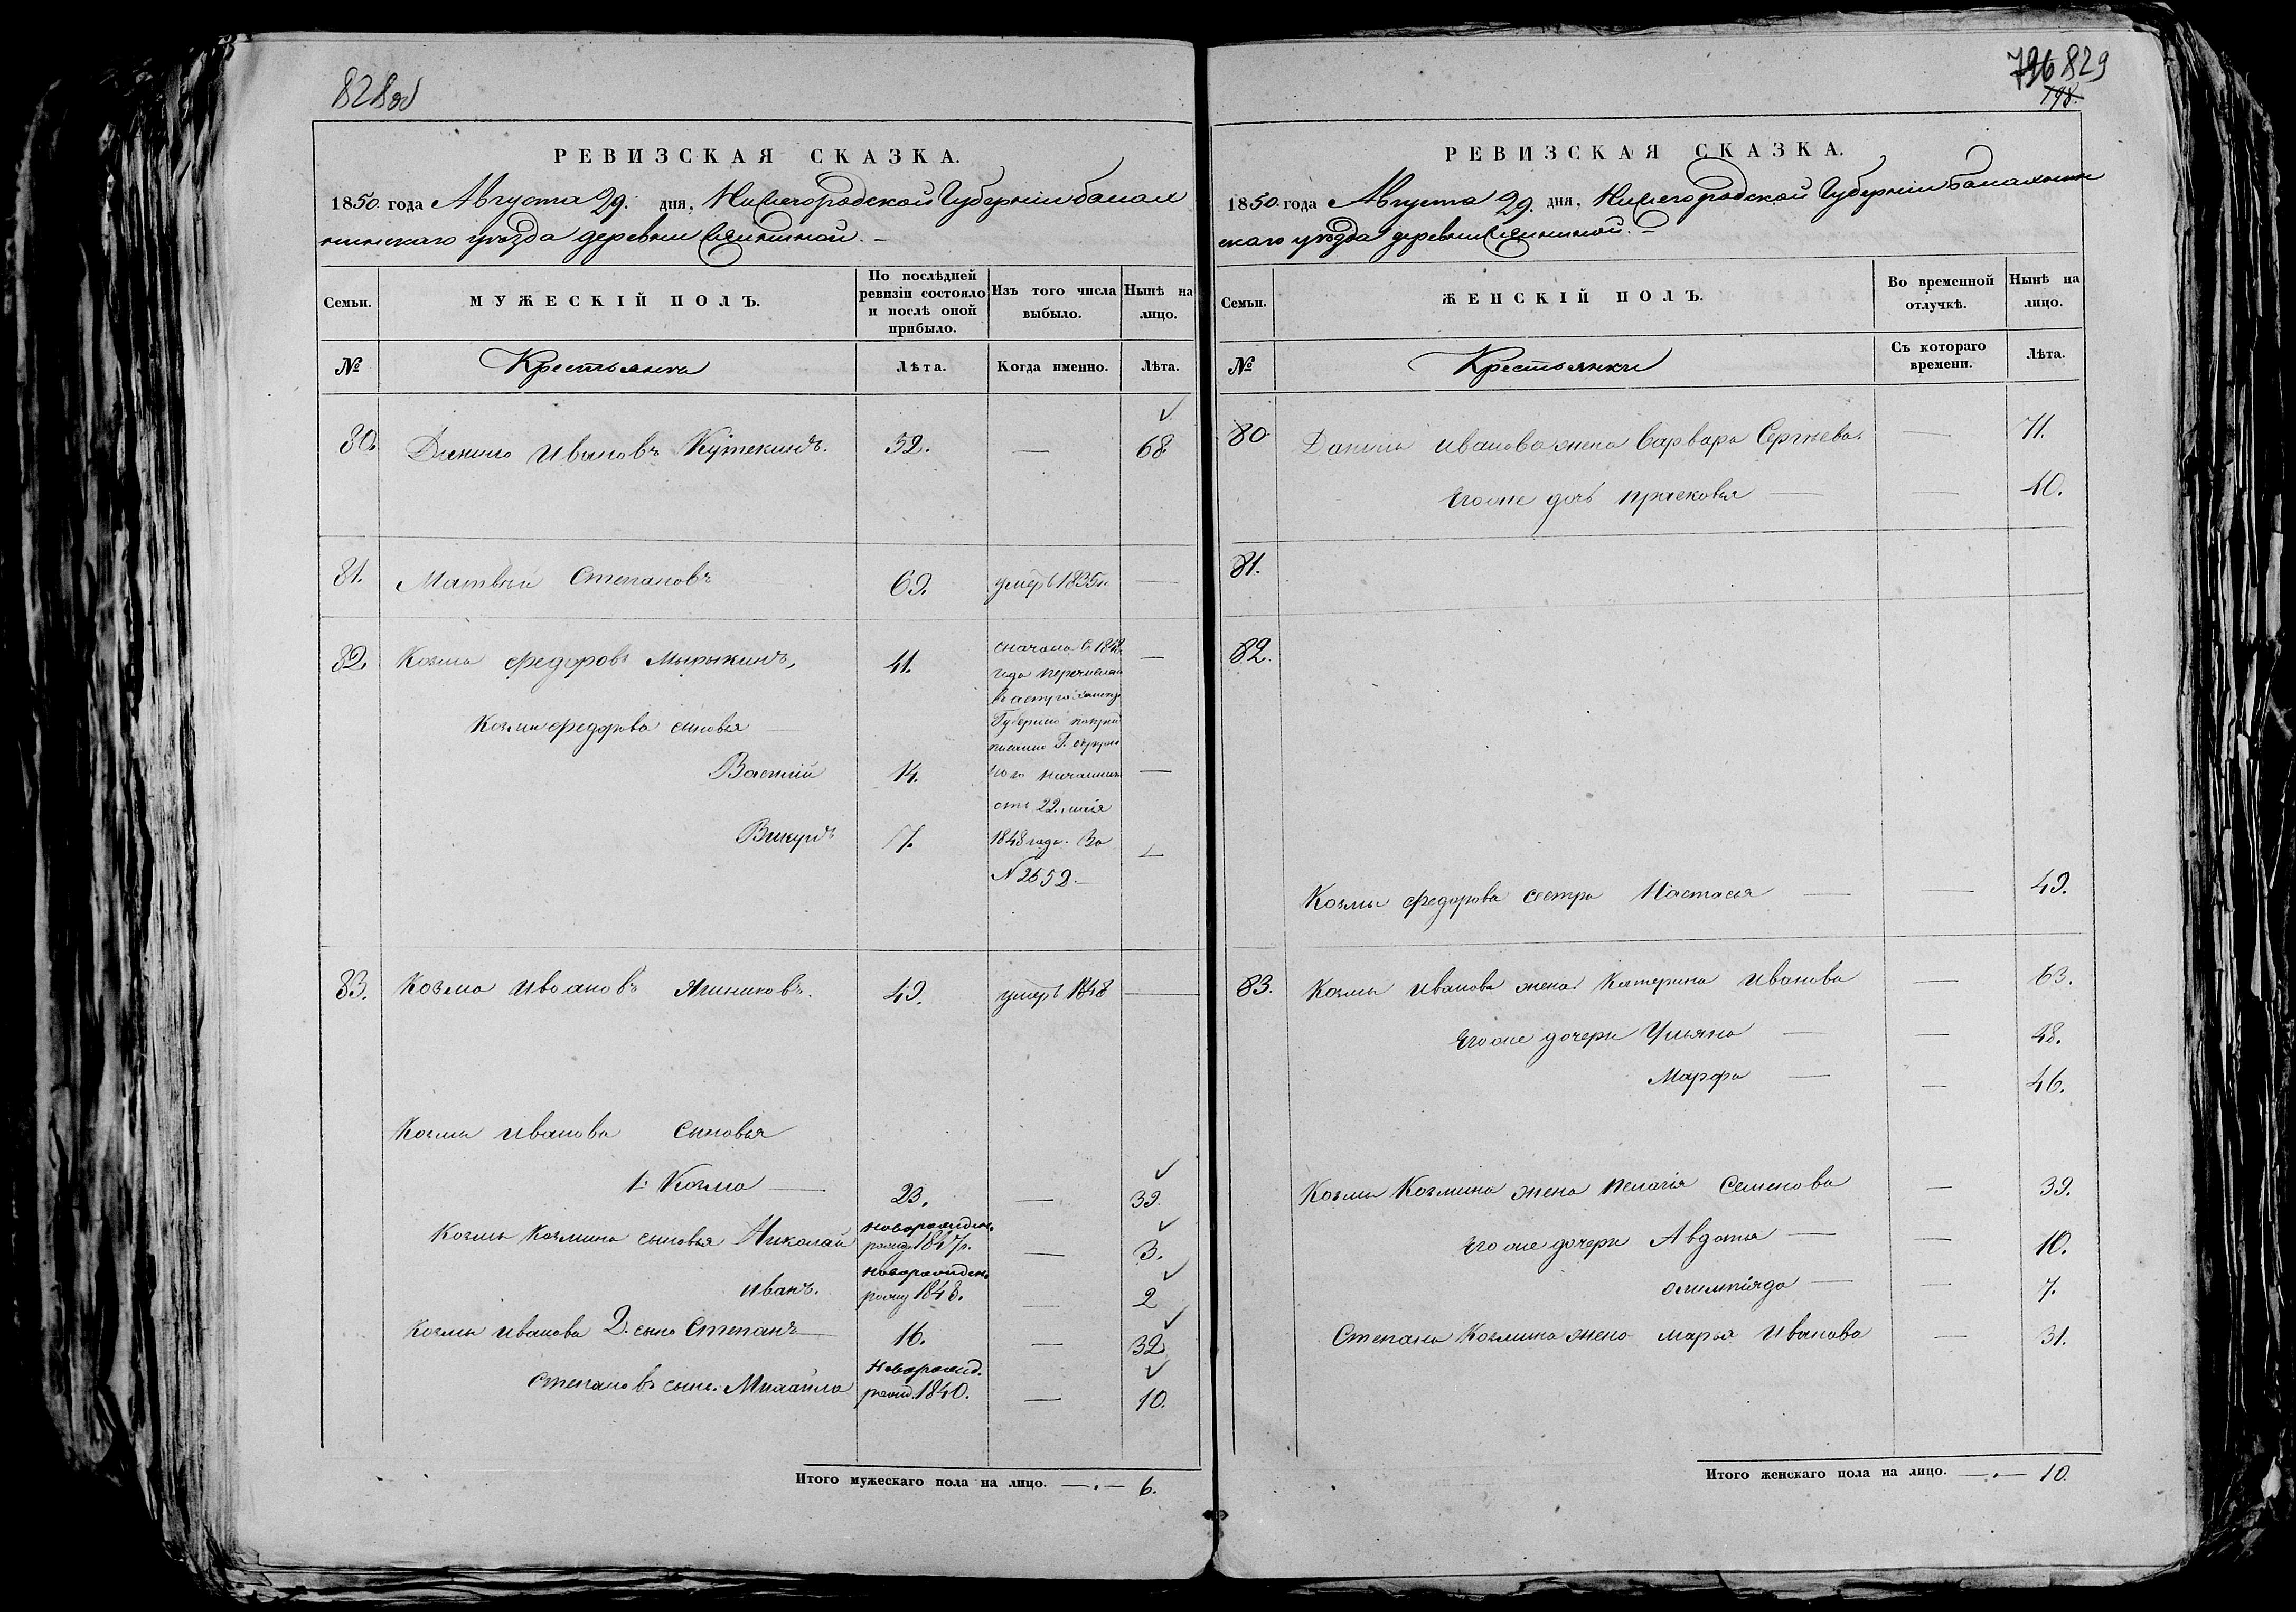 828 об
РЕВИЗСКАЯ СКАЗКА.
1850 года Августа 29. дня, Нижегородской Губернiи балах
нинскаго уѣзда деревни
Семьи.
МУЖЕСКІЙ ПОЛЪ.
По послѣдней ревизіи состояло и послѣ оной прибыло.
Изъ того числа выбыло.
Нынѣ на лицо.
№
Крестьяне
Лѣта.
Когда именно.
Лѣта.
80. Данило Ивановъ Кутекинъ. 52. — 68.
81. Матвѣй Степановъ 69. умеръ 1835г. —
82. Козма Федоровъ Мырыкинъ, 41. —
сначала 1848
года перечислен
в астраханскую
Губернию по пред
писанию Г. окруж
ного начальник
отъ 22. июля
1848 года. За
N 2652. —
Козмы Федорова сыновья —
Василiй 14. —
Викулъ 7. —
83. Козма Ивановъ Яшниковъ. 49. умеръ 1848 —
Козмы Иванова Сыновья
1. Козма — 23. — 39.
Козмы Козмина сыновья Николай новорожден. рожд 1847г. — 3.
Иванъ. новорожден. рожд 1848. — 2
Козмы Иванова 2. сынъ Степанъ — 16. — 32.
Степановъ сынъ. Михайло новорожд. рожд. 1840. — 10.
Итого мужескаго пола на лицо. — 6.
796 829
198.
РЕВИЗСКАЯ СКАЗКА.
1850. года Августа 29. дня, Нижегородской Губернiи Балахнин
скаго уѣзда деревни
Семьи.
ЖЕНСКІЙ ПОЛЪ.
Во временной отлучкѣ.
Нынѣ на лицо.
№
Крестьянки
Съ котораго времени.
Лѣта.
80. Данила Иванова жена Варвара Сергѣева. — 71.
Его же дочь Прасковья — — 40.
81.
82.
Козмы Федорова сестра Настасья — — 49.
83. Козмы Иванова жена Катерина Иванова — 63.
Его же дочери Ульяна — — 48.
Марфа — — 46.
Козмы Козмина жена Пелагiя Семенова — 39.
Его же дочери Авдотья — — 10.
Олимпiяда — — 7.
Степана Козмина жена Марья Иванова — 31.
Итого женскаго пола на лицо. — 10.